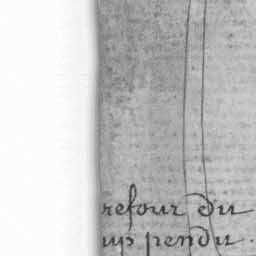 refour du
up pendu.